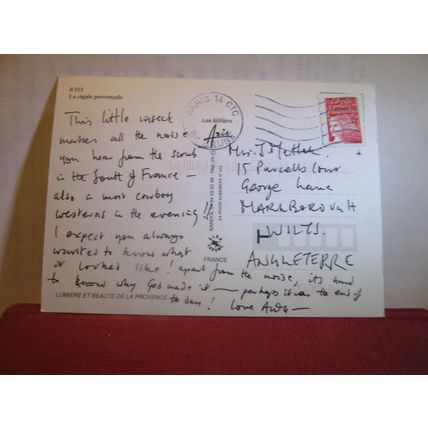 0 515
La cigale provençale
This little insect
makes all the noise
you hear from the scrub
in the South of France —
also a most cowboy
westerns in the evening!!
I expect you always
wanted to know what
it looked like! apart from the noise, its hard
to know why God made it — perhaps it was the end of
LUMIERE ET BEAUTE DE LA PROVENCE
Love
PARIS 14 CTC
Les Editions
BANDOL
FRANCE
Mrs. J.
15 Purcells Court
George Lane
MARLBOROUGH
WILTS.
ANGLETERRE